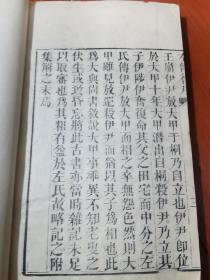 壬崩伊尹放大甲于桐乃自立也伊尹即位
於大甲七年大甲潛出自桐殺伊尹乃立其
子伊陟伊奮命復其父之田宅而中分之左
氏傳伊尹放大甲而相之卒無怨色然則大
甲雖見放還殺伊尹而猶以其子爲相也此
爲大與尚書敘說大甲事乖異不知老叟之
伏生或致昏忘將此古書亦當時雜記未足
以取審也爲其粗有益於左氏故略記之附
集解之末焉